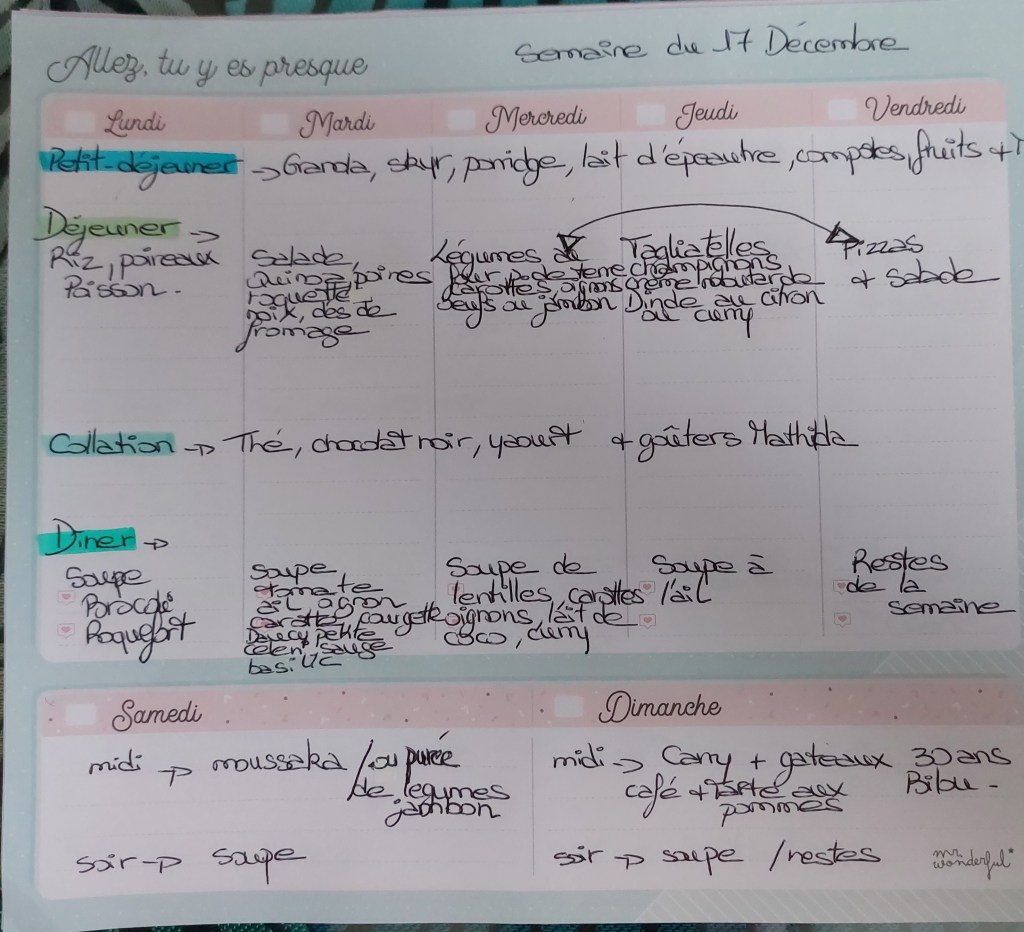 Semaine du 17 Décembre
Allez, tu y es presque
Lundi Mardi Mercredi Jeudi Vendredi
Petit-déjeuner → Granola, skyr, porridge, lait d'épeautre, compotes, fruits +
Déjeuner →
Riz, poireaux
Poisson.
Salade,
Quinoa, poires
roquette
noix, dés de
fromage
Légumes
pomme de terre
carottes, oignons
oeufs ou jambon
Tagliatelles
champignons
crème
Dinde au citron
ou curry
Pizzas
+ salade
Collation → Thé, chocolat noir, yaourt + goûters Mathilda
Diner →
Soupe
Brocoli
Roquefort
Soupe
tomate
ail, oignon
carottes, courgette
petite
céleri, sauge
basilic
Soupe de
lentilles, carottes
oignons, lait de
coco, curry
Soupe à
l'ail
Restes
de la
semaine
Samedi
midi → moussaka / ou purée
de légumes
jambon
soir → soupe
Dimanche
midi → Carry + gateaux 30 ans
café + Tarte aux Bibu -
pommes
soir → soupe / restes
mr. wonderful*